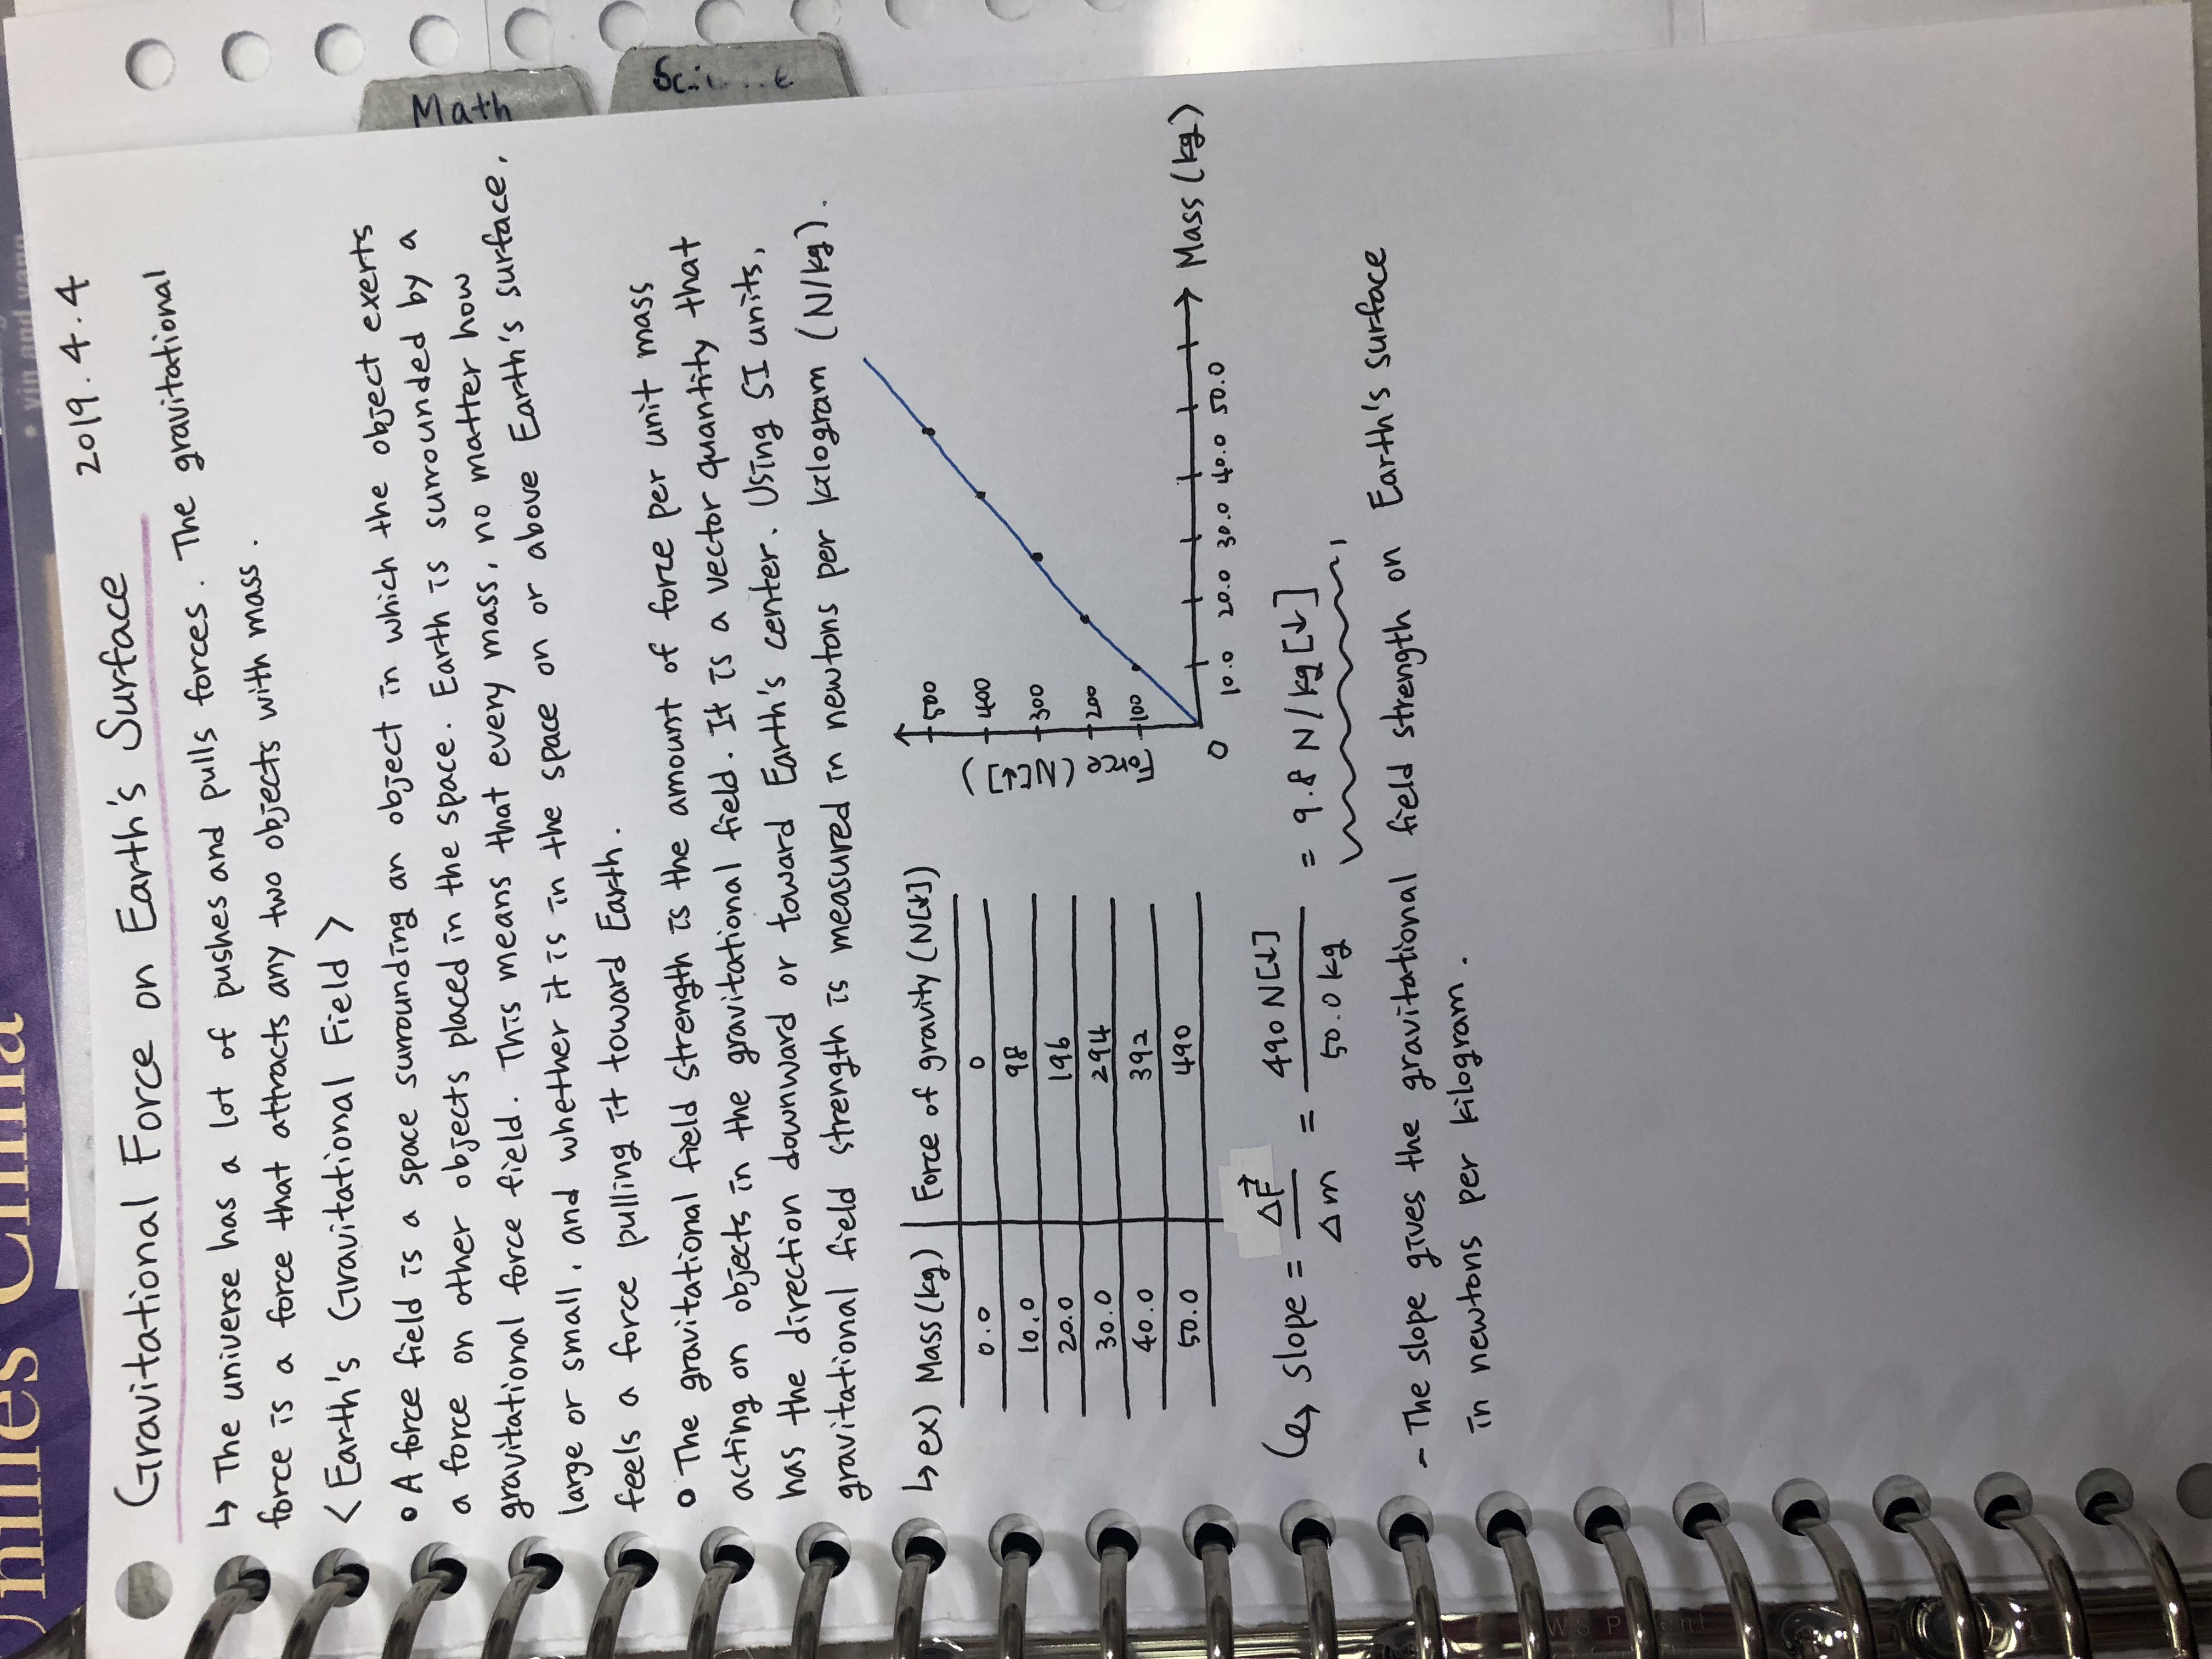 Gravitational Force on Earth's Surface 2019.4.4
↳ The universe has a lot of pushes and pulls forces. The gravitational
force is a force that attracts any two objects with mass.
<Earth's Gravitational Field>
• A force field is a space surrounding an object in which the object exerts
a force on other objects placed in the space. Earth is surrounded by a
gravitational force field. This means that every mass, no matter how
large or small, and whether it is in the space on or above Earth's surface,
feels a force pulling it toward Earth.
• The gravitational field strength is the amount of force per unit mass
acting on objects in the gravitational field. It is a vector quantity that
has the direction downward or toward Earth's center. Using SI units,
gravitational field strength is measured in newtons per kilogram (N/kg).
↳ ex) Mass (kg) | Force of gravity (N[↓])
0.0 | 0
10.0 | 98
20.0 | 196
30.0 | 294
40.0 | 392
50.0 | 490
(N[↓])
500
400
300
200
100
0
10.0 20.0 30.0 40.0 50.0
Mass (kg)
↳ slope = ΔF⃗ / Δm = 490 N[↓] / 50.0 kg = 9.8 N/kg [↓]
- The slope gives the gravitational field strength on Earth's surface
in newtons per kilogram.
Math
yin and yang